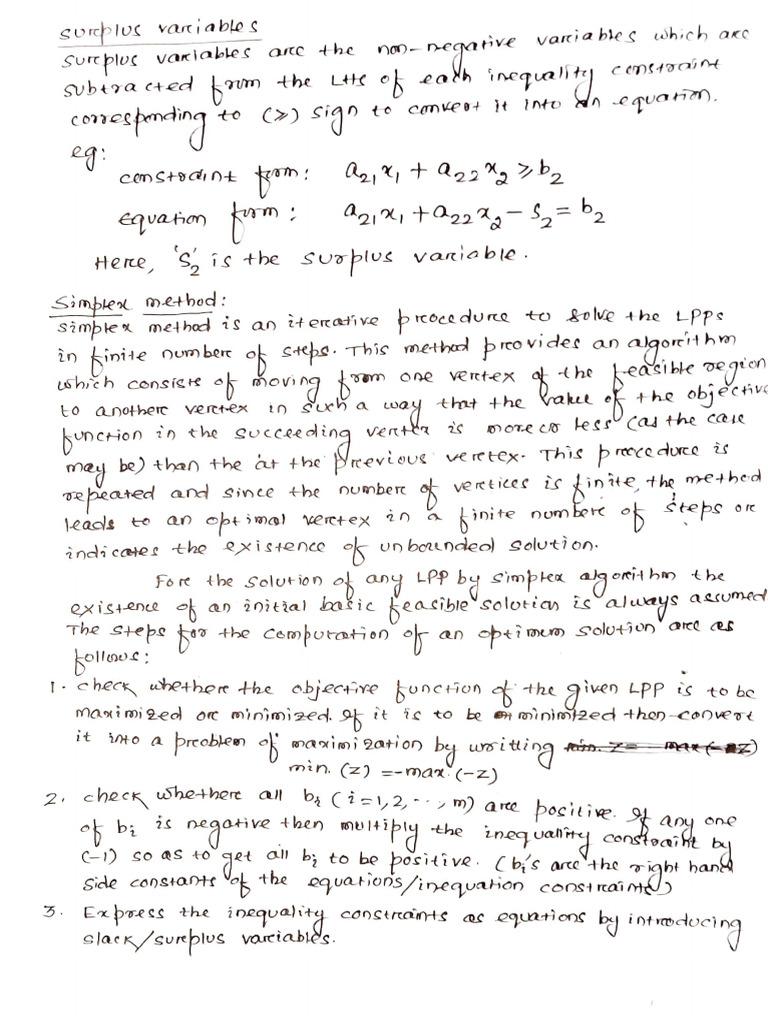 surplus variables
surplus variables are the non-negative variables which are
subtracted from the LHS of each inequality constraint
corresponding to (≥) sign to convert it into an equation.
eg:
constraint form: a₂₁x₁ + a₂₂x₂ ≥ b₂
Equation form: a₂₁x₁ + a₂₂x₂ - S₂ = b₂
Here, 'S₂' is the surplus variable.
Simplex method:
simplex method is an iterative procedure to solve the LPPs
in finite number of steps. This method provides an algorithm
which consists of moving from one vertex of the feasible region
to another vertex in such a way that the value of the objective
function in the succeeding vertex is more or less (as the case
may be) than the at the previous vertex. This procedure is
repeated and since the number of vertices is finite, the method
leads to an optimal vertex in a finite number of steps or
indicates the existence of unbounded solution.
For the solution of any LPP by simplex algorithm the
existence of an initial basic feasible solution is always assumed
The steps for the computation of an optimum solution are as
follows:
1. check whether the objective function of the given LPP is to be
maximized or minimized. If it is to be minimized then convert
it into a problem of maximization by writting min. Z = max (-Z)
min. (Z) = -max. (-Z)
2. check whether all bᵢ (i=1,2,..,m) are positive. If any one
of bᵢ is negative then multiply the inequality constraint by
(-1) so as to get all bᵢ to be positive. (bᵢ's are the right hand
side constants of the equations/inequation constraints)
3. Express the inequality constraints as equations by introducing
slack/surplus variables.